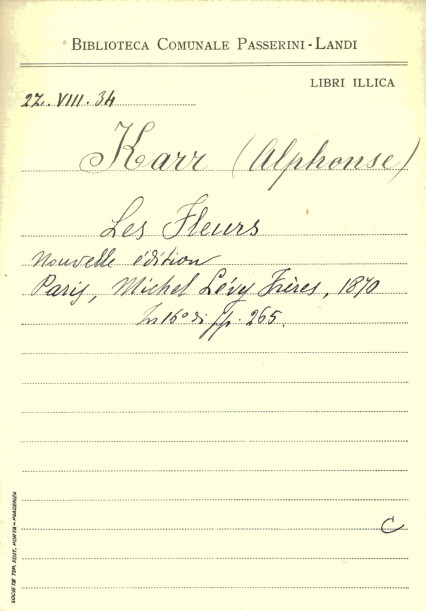 BIBLIOTECA COMUNALE PASSERINI-LANDI
LIBRI ILLICA
22.VIII.34
Karr (Alphonse)
Les Fleurs
Nouvelle édition
Paris, Michel Lévy Frères, 1870
In 16° di pp. 265.
C
SOCIETÀ TIP. EDIT. PORTA - PIACENZA